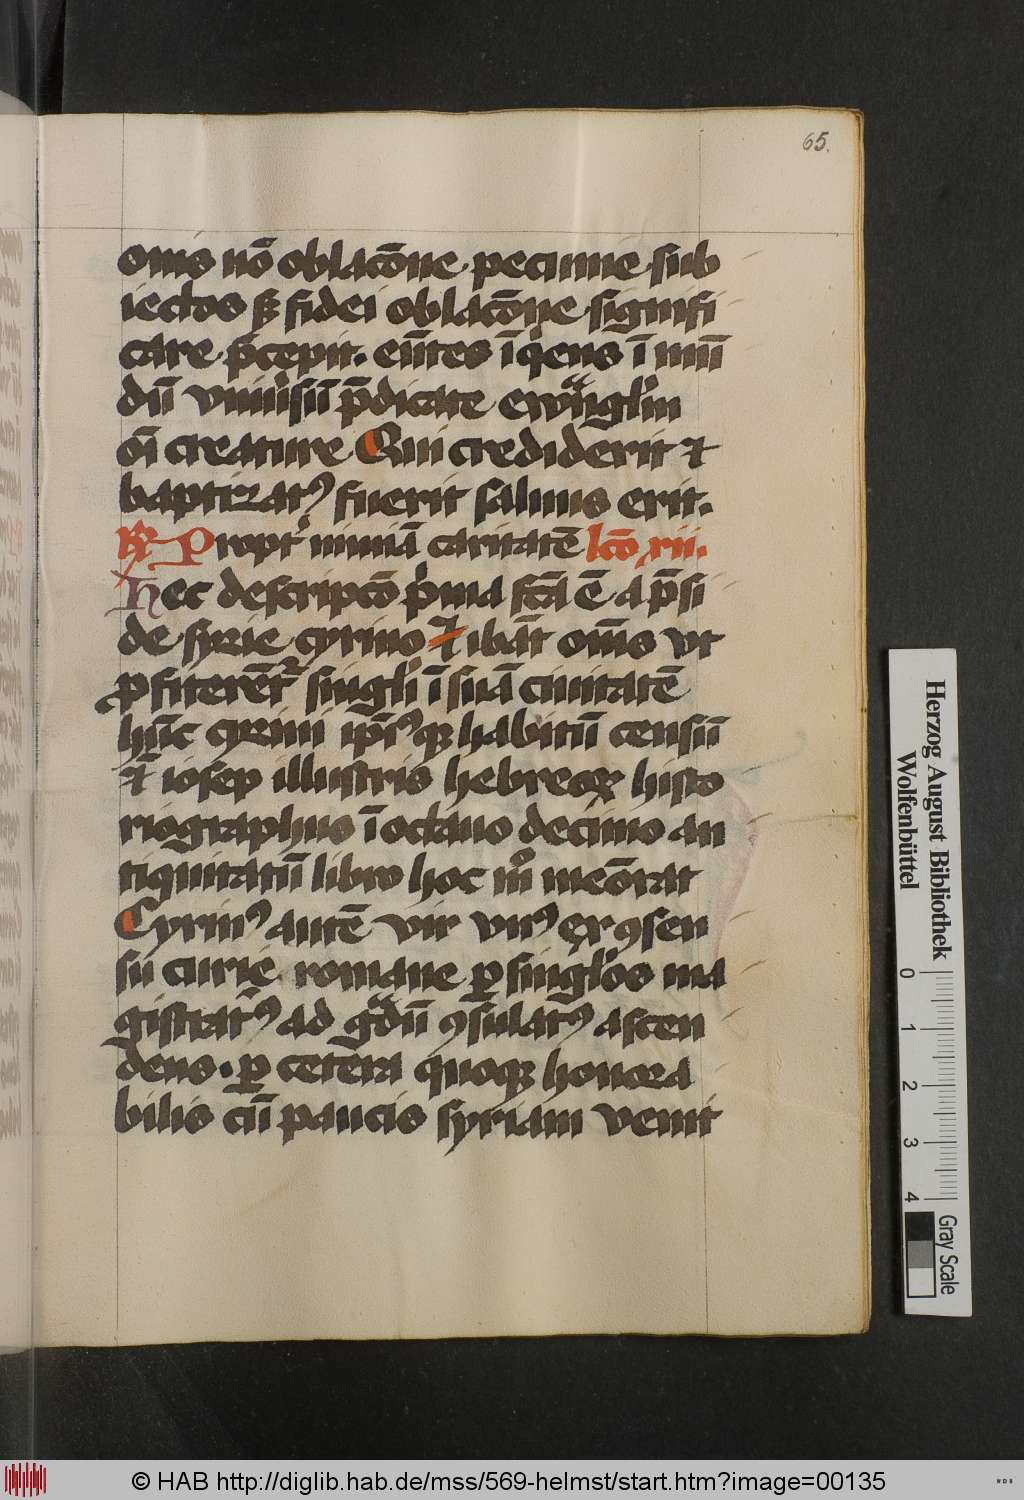 65.
om̄s nō oblacōne pecunie sub
iectos sꝫ fidei oblacōne signifi
care p̄cepit. eūtes īqiens ī mū
dū vniuˀsū p̄dicate ewāgliin
oī creature Qui crediderit ⁊
baptizatꝰ fuerit saluus erit.
R̸ Proptˀ nimiā caritatē lcō xii.
Hec descripcō pima fcā ē a p̄si
de syrie cyrino ⁊ ibāt om̄s vt
ꝓfiterēt singli ī suā ciuitatē
hūc cyrini ip̄iꝰqꝫ habitū censū
⁊ iosep illustris hebreoꝝ histo
riographus ī octauo decimo an
tiquitatū libro hoc mō meōrat
Cyrinꝰ autē vir vnꝰ ex ꝯsen
su curie romane ꝑ singlos ma
gistratꝰ ad gdū ꝯsulatꝰ ascen
dens. ꝑ cetera quoqꝫ honora
bilis cū paucis syriam venit
Herzog August Bibliothek
Wolfenbüttel
0 1 2 3 4
Gray Scale
© HAB http://diglib.hab.de/mss/569-helmst/start.htm?image=00135